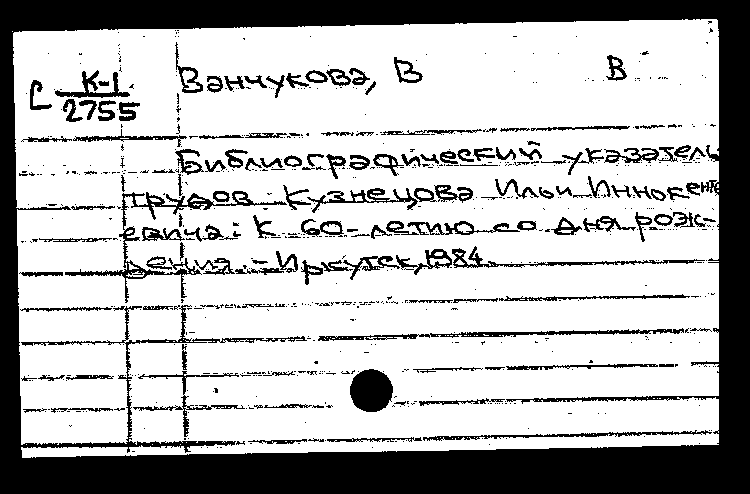 С К-1/2755 Ванчукова, В В
Библиографический указатель
трудов Кузнецова Ильи Иннокенте
евича: К 60-летию со дня рож-
дения. - Иркутск, 1984.